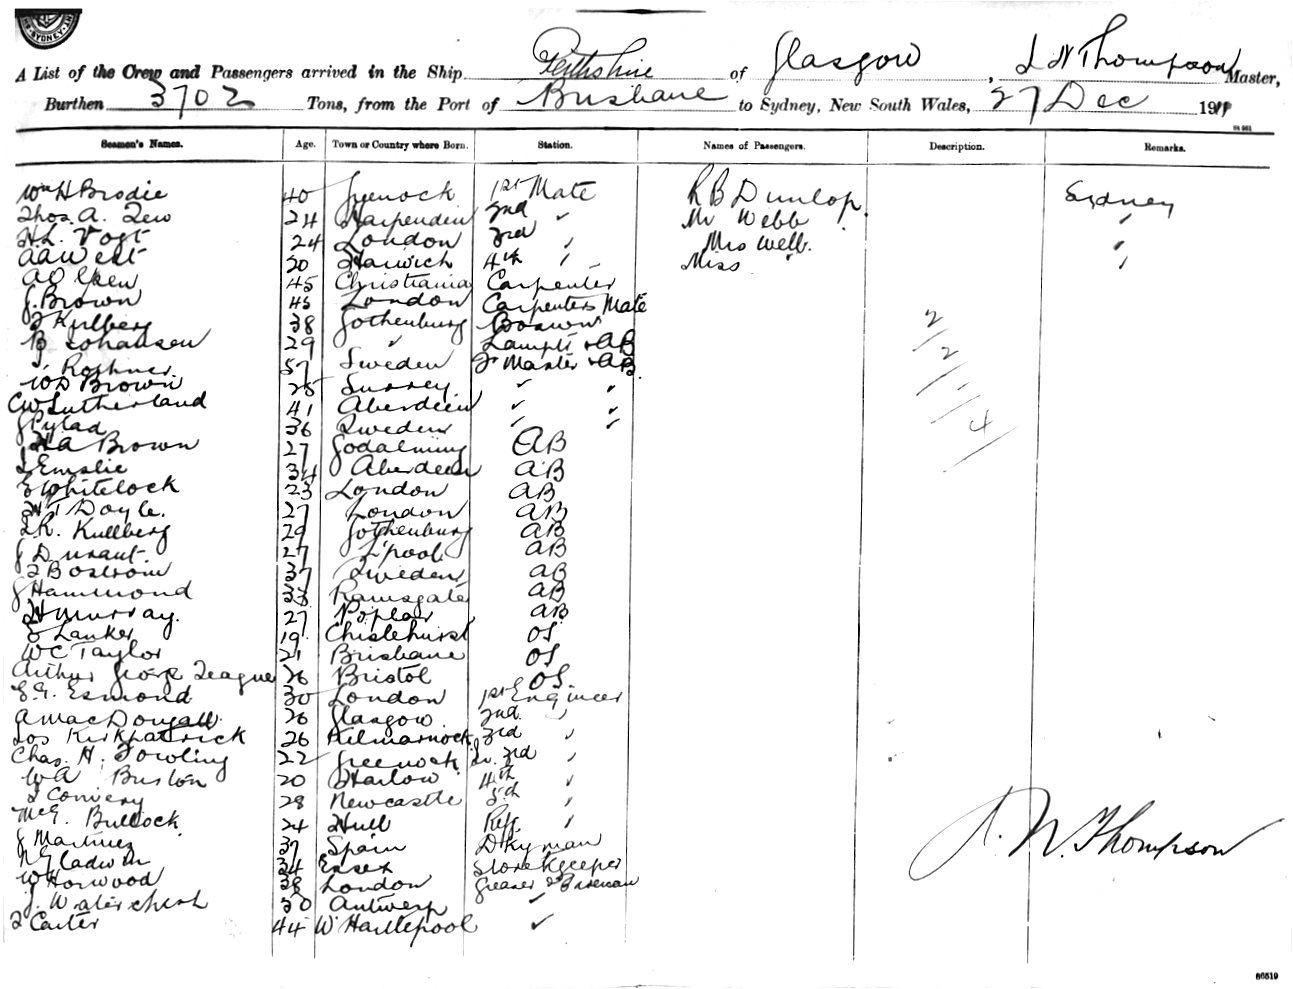 SYDNEY
A List of the Crew and Passengers arrived in the Ship Perthshire of Glasgow, J W Thompson Master,
Burthen 3702 Tons, from the Port of Brisbane to Sydney, New South Wales, 27 Dec 1911
St 961
Seamen's Names. Age. Town or Country where Born. Station. Names of Passengers. Description. Remarks.
Wm H Brodie 40 Greenock 1st Mate R B Dunlop. Sydney
Thos. A. Tew 24 Harpenden 2nd " Mr Webb "
H.L. Vogt 24 London 3rd " Mrs Webb. "
A A West 20 Harwich 4th " Miss " "
A Olsen 45 Christiania Carpenter
J. Brown 45 London Carpenters Mate
Kullberg 38 Gothenburg Boswn
B Johansen 29 " Lamps & AB
57 Sweden Master & AB
W D Brown 25 Surrey " "
C W Sutherland 41 Aberdeen " "
J Pylad 36 Sweden " "
H A Brown 27 Godalming AB
J Emslie 34 Aberdeen AB
E Whitelock 23 London AB
H T Doyle. 27 London AB
J R. Kullberg 29 Gothenburg AB
J Durant. 27 L'pool AB
J Bostrom 37 Sweden AB
J Hammond 33 Ramsgate AB
H Murray. 27 Poplar AB
Lanker 19 Chislehurst OS
W C Taylor 21 Brisbane OS
Arthur George Teague 26 Bristol OS
E.G. Esmond 30 London 1st Engineer
A MacDougall 26 Glasgow 2nd "
Jos Kirkpatrick 26 Kilmarnock 3rd "
Chas. H. Fowling 22 Greenock Jr. 3rd "
W A Burton 20 Harlow 4th "
J Convery 28 Newcastle 5th "
Bullock 24 Hull Refr "
J Martinez 37 Spain Dkyman
N Gladwin 34 Essex Storekeeper
W Horwood 38 London Greaser & Fireman
J. 30 Antwerp "
J Carter 44 W Hartlepool "
2/2/1/4/
J. W. Thompson
86519